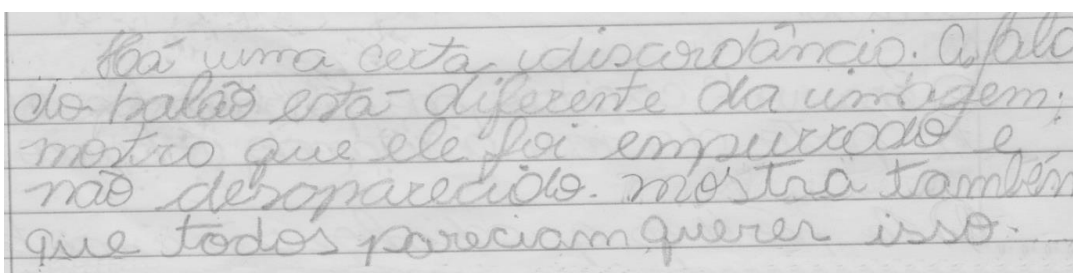 Há uma certa discordância. A fala
do balão está diferente da imagem;
mostra que ele foi empurrado e
não desaparecido. mostra também
que todos pareciam querer isso.